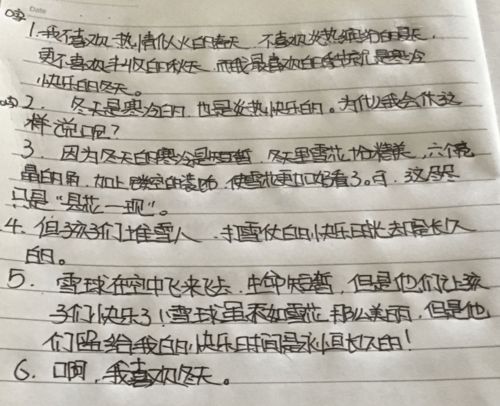 Date
1.我不喜欢热情似火的春天 不喜欢炎热缤纷的夏天,
更不喜欢丰收的秋天 而我最喜欢的季节就是寒冷
快乐的冬天。
2. 冬天是寒冷的,也是炎热快乐的。为什么我会作这
样说呢?
3. 因为冬天的寒冷是短暂,冬天里雪花 精美,六个亮
晶晶的角,加上镂空的装饰,使雪花更加好看了。可,这尽尽
只是“昙花一现”。
4. 但孩子们堆雪人,打雪仗的快乐时长却是长久
的。
5. 雪球在空中飞来飞去,生命短暂,但是他们让孩
子们快乐了!雪球虽不如雪花那么美丽,但是他
们留给我的快乐时间是永恒长久的!
6. 啊,我喜欢冬天。